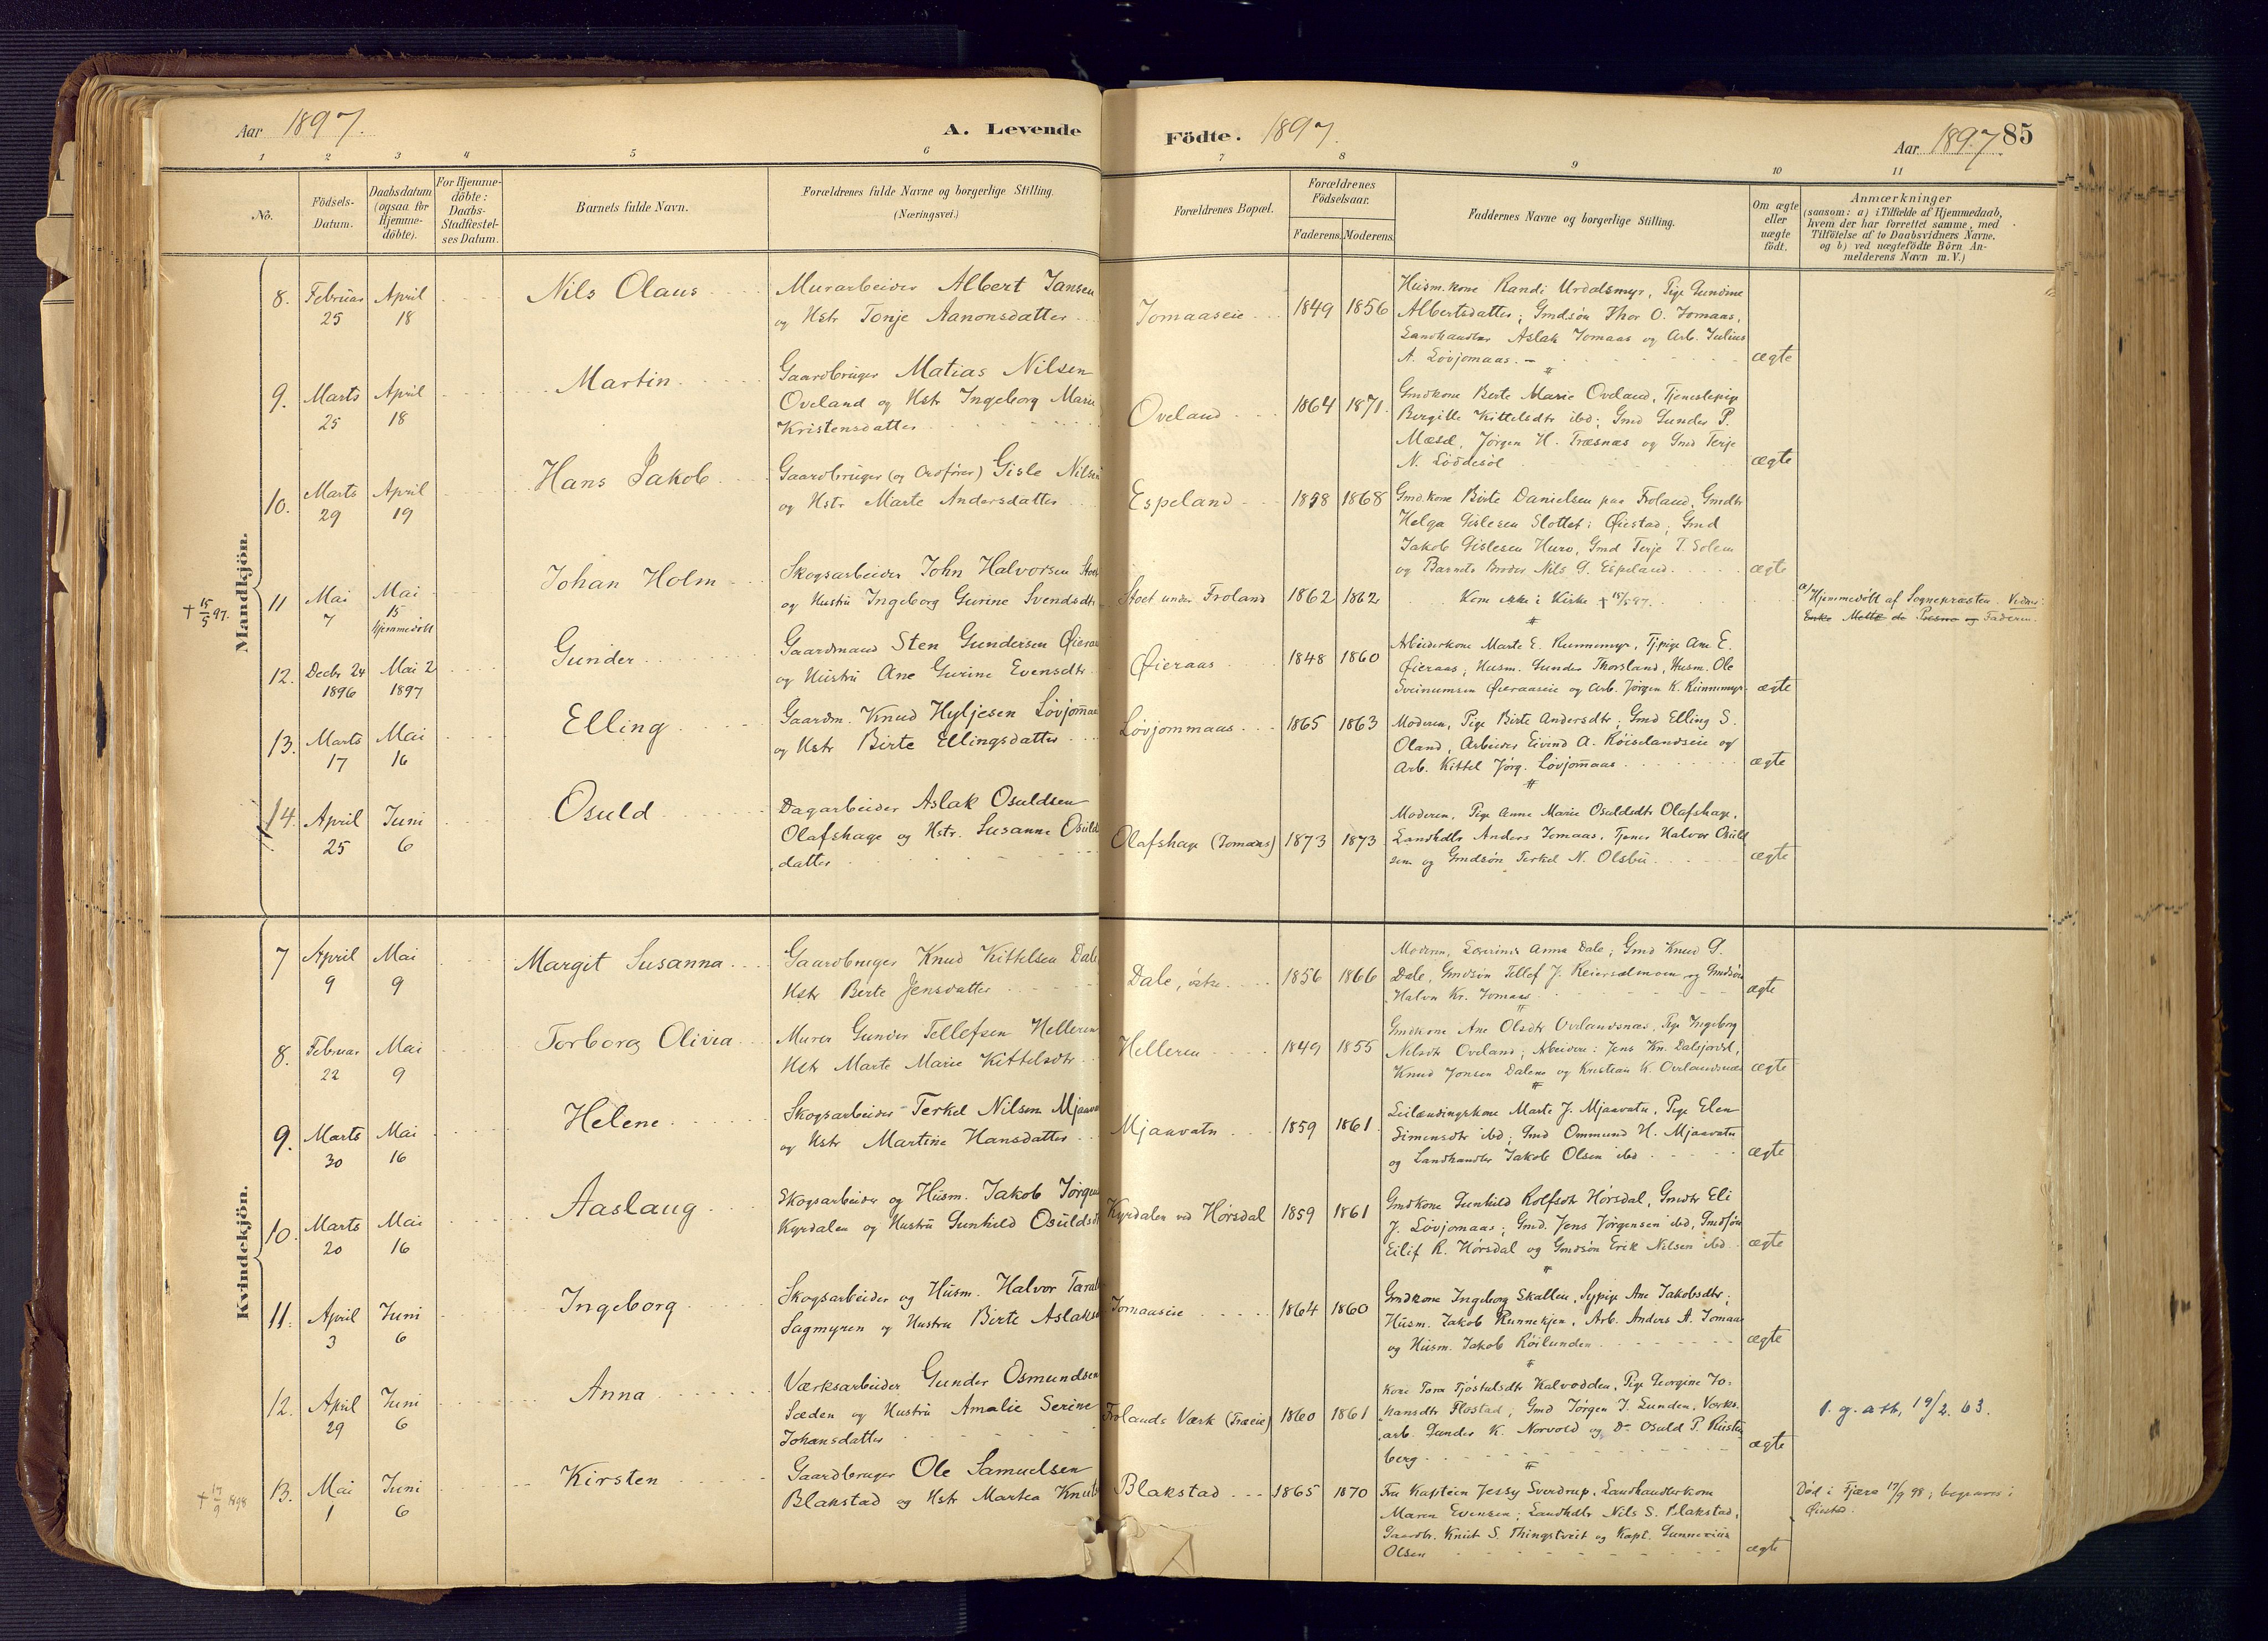 Aar 1897.
A. Levende
Födte. 1897.
Aar 1897 85
1 2 3 4 5 6 7 8 9 10 11
No.
Födsels-
Datum.
Daabsdatum
(ogsaa for
Hjemme-
döbte).
For Hjemme-
döbte:
Daabs-
Stadfæstel-
ses Datum.
Barnets fulde Navn.
Forældrenes fulde Navne og borgerlige Stilling.
(Næringsvei.)
Forældrenes Bopæl.
Forældrenes
Födselsaar.
Faderens. Moderens.
Faddernes Navne og borgerlige Stilling.
Om ægte
eller
uægte
födt.
Anmærkninger
(saasom: a) i Tilfælde af Hjemmedaab,
hvem der har forrettet samme, med
Tilföielse af to Daabsvidners Navne.
og b) ved uægtefödte Börn An-
melderens Navn m.V.)
Mandkjön.
8. Februar 25
April 18
Nils Olaus
Murarbeider Albert Jansen
og Hstr Tonje Aanonsdatter
Jomaaseie
1849 1856
Husm.kone Randi Urdalsmyr, Pige Gundine
Albertsdatter; Gmdsøn Thor O. Jomaas,
Landhandler Aslak Jomaas og Arb. Julius
A. Løvjomaas.
ægte
9. Marts 25
April 18
Martin
Gaardbruger Matias Nilsen
Oveland og Hstr Ingeborg Marie
Kristensdatter
Oveland
1864 1871.
Gmdkone Berte Marie Oveland, Tjenestepige
Bergitte Kittelsdtr ibd; Gmd Gunder P.
Mæsel, Jørgen H. Træsnæs og Gmd Terje
N. Löddesöl
ægte
10. Marts 29
April 19
Hans Jakob
Gaardbruger (og Ordfører) Gisle Nilsen
og Hstr Marte Andersdatter
Espeland
1858 1868
Gmd.kone Birte Danielsen paa Froland, Gmdtr
Helga Gislesen Slottet i Øiestad; Gmd
Jakob Gislesen Hurv, Gmd Terje T. Solem
og Barnets Broder Nils G. Espeland.
ægte
+ 15/5 97.
11 Mai 7
Mai 15
hjemmedöbt
Johan Holm
Skogsarbeider John Halvorsen Stoet
og Hustru Ingeborg Gurine Svendsdtr
Stoet under Froland
1862 1862
Kom ikke i Kirke + 15/5 97.
a/ Hjemmedöbt af Sognepræsten. Vidner:
Enke Mette de Presno og Faderen.
12. Decbr 24 1896
Mai 2 1897
Gunder
Gaardmand Sten Gundersen Øieraas
og Hustru Ane Gurine Evensdtr
Øieraas
1848 1860
Arbeiderkone Marte E. Runnemyr, Tj.pige Ane E.
Øieraas; Husm. Gunder Thorsland, Husm. Ole
Sveinumsen Øieraaseie og Arb. Jørgen K. Runnemyr
ægte
13. Marts 17
Mai 16
Elling
Gaardm. Knud Hyljesen Løvjomaas
og Hstr Birte Ellingsdatter
Løvjommaas
1865 1863
Moderen, Pige Birte Andersdtr; Gmd Elling S.
Oland, Arbeider Eivind A. Röiselandseie og
Arb. Kittel Jørg. Løvjomaas
ægte
14. April 25
Juni 6
Osuld
Dagarbeider Aslak Osuldsen
Olafshage og Hstr. Susanne Osulds
datter
Olafshage (Jomaas)
1873 1873
Moderen, Pige Anne Marie Osuldsdtr Olafshage,
Landhdlr Anders Jomaas, Tjener Halvor Osuld
sen og Gmdsøn Terkel N. Olsbu
ægte
Kvindekjön.
7 April 9
Mai 9
Margit Susanna
Gaardbruger Knud Kittelsen Dale
Hstr Berte Jensdatter
Dale, östre
1856 1866
Moderen, Lærerinde Anna Dale; Gmd Knud G.
Dale, Gmdsøn Tellef J. Reiersølmoen og Gmdsøn
Halvor Kr. Jomaas
ægte
8. Februar 22
Mai 9
Torborg Olivia
Murer Gunder Tellefsen Helleren
Hstr Marte Marie Kittelsdtr
Helleren
1849 1855
Gmdkone Ane Olsdtr Ovelandsnæs, Pige Ingeborg
Nilsdtr Oveland; Arbeidere: Jens Kn. Dalsjordet,
Knud Jonsen Dalene og Kristian K. Ovelandsnæs
ægte
9. Marts 30
Mai 16
Helene
Skogsarbeider Terkel Nilsen Mjaavatn
og Hstr Martine Hansdatter
Mjaavatn
1859 1861.
Leilændingskone Marte J. Mjaavatn, Pige Elen
Simensdtr ibd; Gmd Ommund H. Mjaavatn
og Landhandler Jakob Olsen ibd
ægte
10. Marts 20
Mai 16
Aaslaug
Skogsarbeider og Husm. Jakob Jørgens
Kyrdalen og Hustru Gunhild Osuldsdtr
Kyrdalen ved Hörsdal
1859 1861
Gmdkone Gunhild Rolfsdtr Hörsdal, Gmdtr Eli
J. Løvjomaas; Gmd. Jens Jørgensen ibd, Gmdsøn
Eilif R. Hörsdal og Gmdsøn Erik Nilsen ibd
ægte
11. April 3
Juni 6
Ingeborg
Skogsarbeider og Husm. Halvor Tarald
Sagmyren og Hustru Birte Aslaksd
Jomaaseie
1864 1860
Gmdkone Ingeborg Skallen, Sypige Ane Jakobsdtr;
Husm. Jakob Runnekjen, Arb. Anders A. Jomaas
og Husm. Jakob Röilunden
ægte
12. April 29
Juni 6
Anna
Værksarbeider Gunder Osmundsen
Sæden og Hustru Amalie Serine
Johansdatter
Frolands Værk (Træeie)
1860 1861
Kone Tone Tjöstulsdtr Kalvodden, Pige Georgine Jo-
hansdtr Flostad; Gmd Jørgen J. Lunden, Værks.
arb. Gunder K. Norvold og Do Osuld P. Risteu
berg
ægte
1. g. att. 19/2. 63.
+ 17/9 1898
13. Mai 1
Juni 6
Kirsten
Gaardbruger Ole Samuelsen
Blakstad og Hstr Martea Knuts
Blakstad
1865 1870
Fru Kaptein Jessy Sverdrup, Landhandlerkone
Maren Evensen; Landhdlr Nils S. Blakstad,
Gaardbr. Knut S. Thingstveit og Kapt. Gunnerius
Olsen
ægte
Död i Fjære 17/9 98; begravet i
Øiestad.